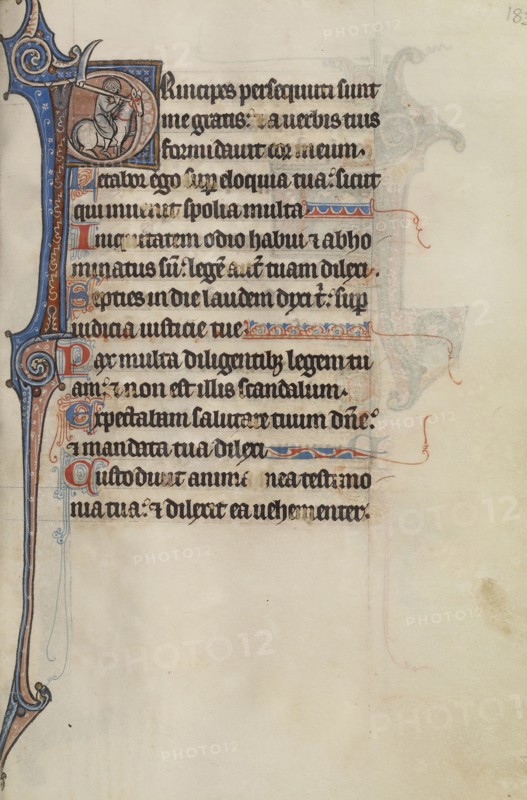 183
Principes persequuti sunt
me gratis: et a uerbis tuis
formidauit cor meum.
Letabor ego sup eloquia tua: sicut
qui inuenit spolia multa
Iniquitatem odio habui ⁊ abho
minatus sū: legē aūt tuam dilexi.
Septies in die laudem dixi t͛: sup
iudicia iusticie tue
Pax multa diligentibꝫ legem tu
am: ⁊ non est illis scandalum.
Expectabam salutare tuum dn̄e:
⁊ mandata tua dilexi
Custodiuit anima mea testimo
nia tua: ⁊ dilexit ea uehementer.
PHOTO12